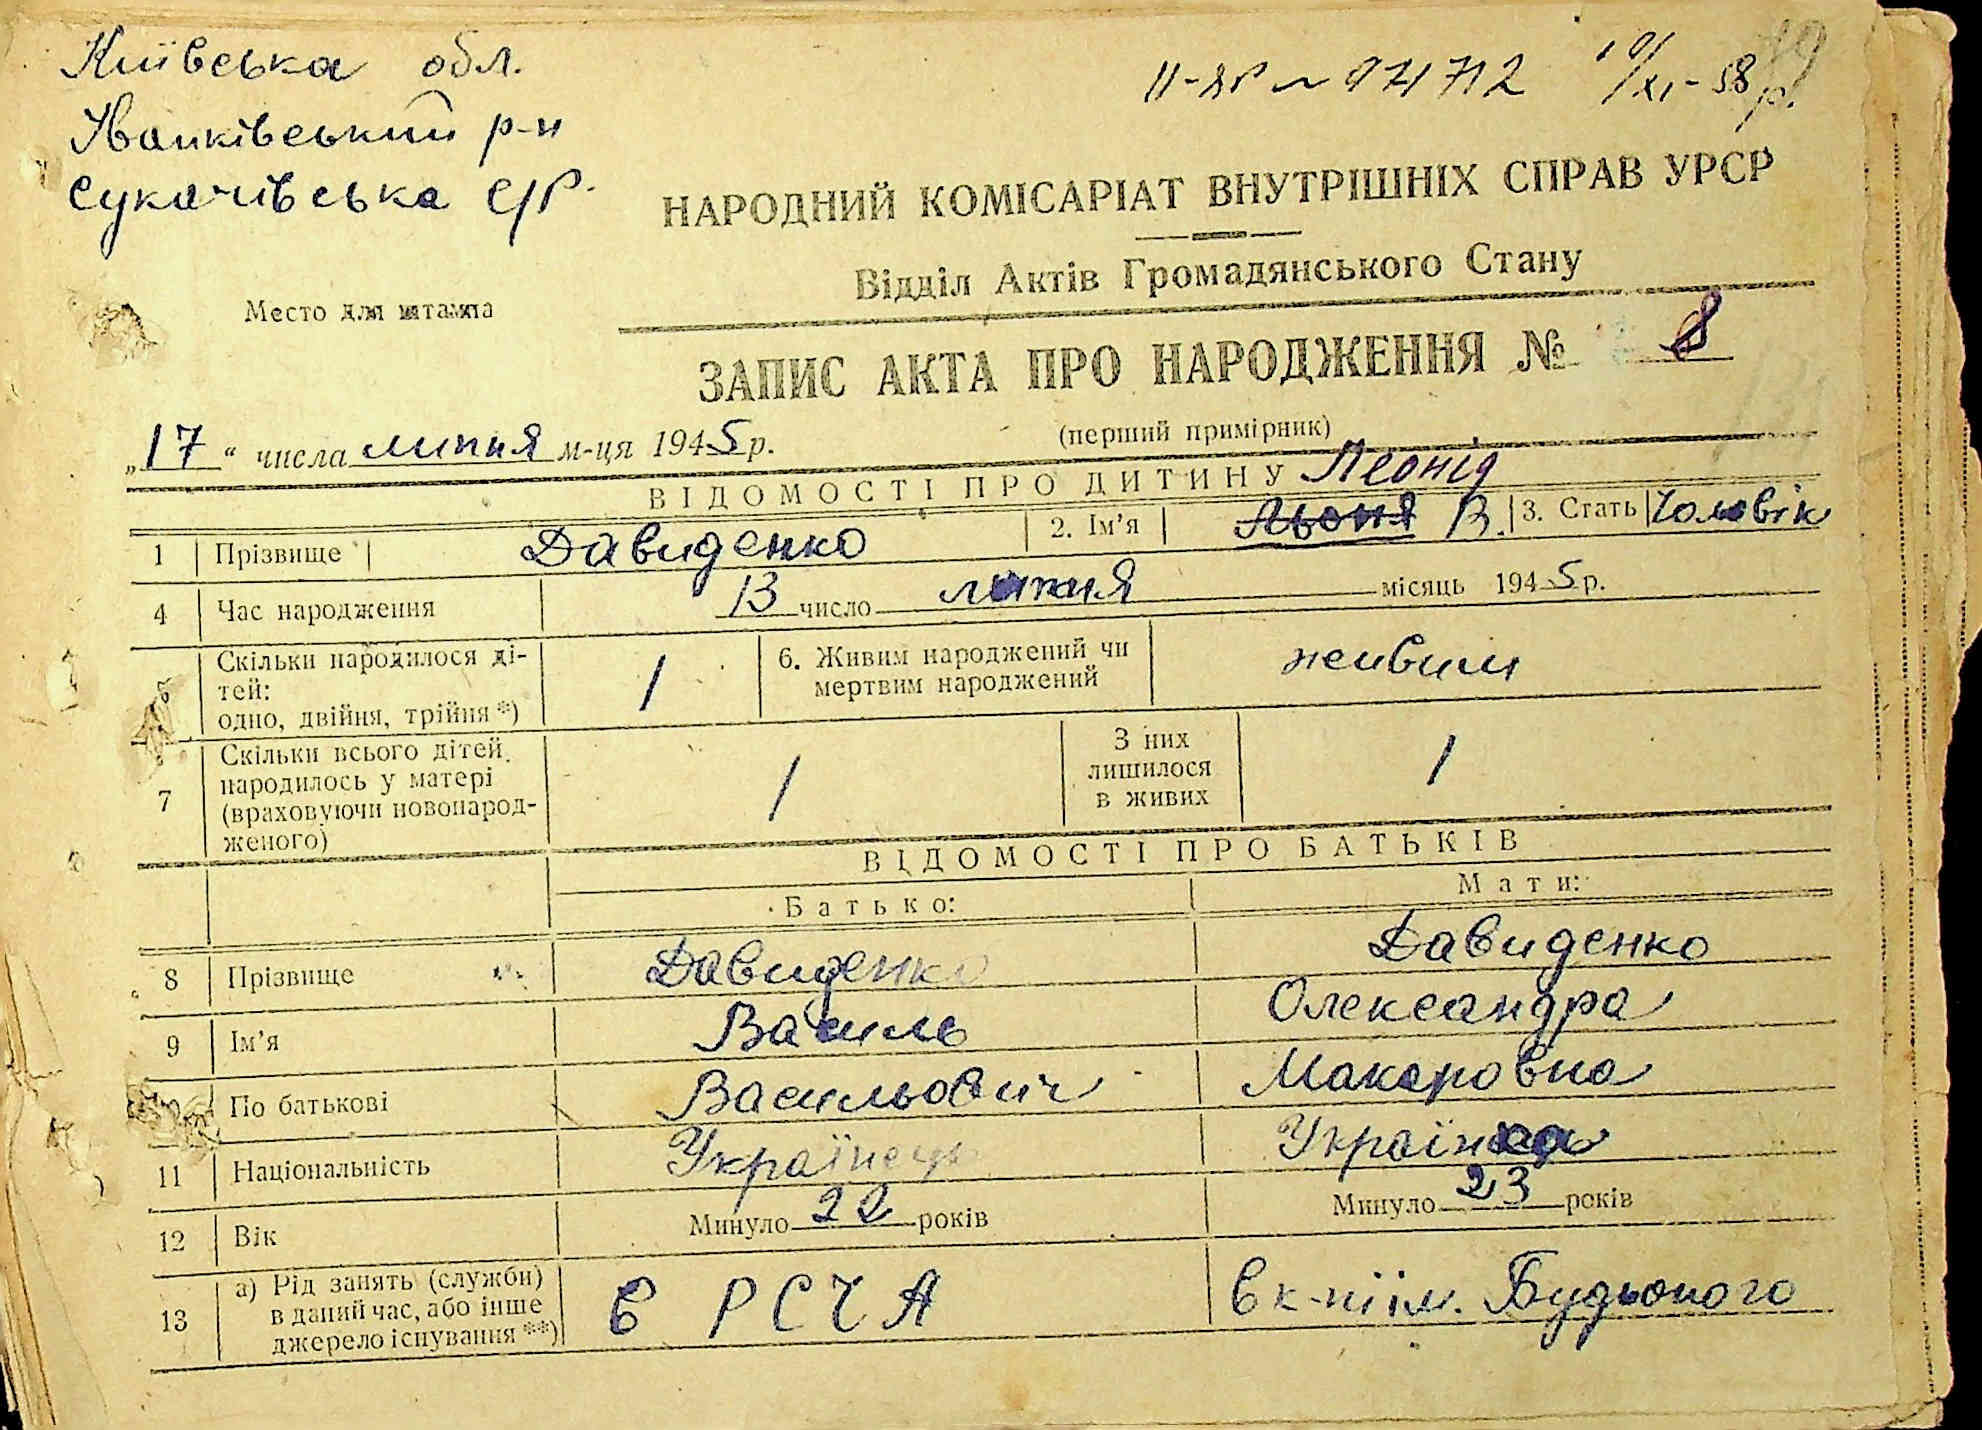 Київська обл.
Іванківський р-н
Сукачівська с/р.
10/XI-58 р.
НАРОДНИЙ КОМІСАРІАТ ВНУТРІШНІХ СПРАВ УРСР
Відділ Актів Громадянського Стану
Место для штампа
ЗАПИС АКТА ПРО НАРОДЖЕННЯ № 8
(перший примірник)
„17“ числа липня м-ця 1945 р.
ВІДОМОСТІ ПРО ДИТИНУ Леонід
1 Прізвище Давиденко 2. Ім’я Льоня В. 3. Стать Чоловік
4 Час народження 13 число липня місяць 1945 р.
Скільки народилося ді-
тей:
одно, двійня, трійня *) 1 6. Живим народжений чи
мертвим народжений живим
7 Скільки всього дітей
народилось у матері
(враховуючи новонарод-
женого) 1 З них
лишилося
в живих 1
ВІДОМОСТІ ПРО БАТЬКІВ
Батько: Мати:
8 Прізвище Давиденко Давиденко
9 Ім’я Василь Олександра
По батькові Васильович Макаровна
11 Національність Українець Українка
12 Вік Минуло 22 років Минуло 23 років
13 а) Рід занять (служби)
в даний час, або інше
джерело існування **) в РСЧА в к-пі ім. Будьоного